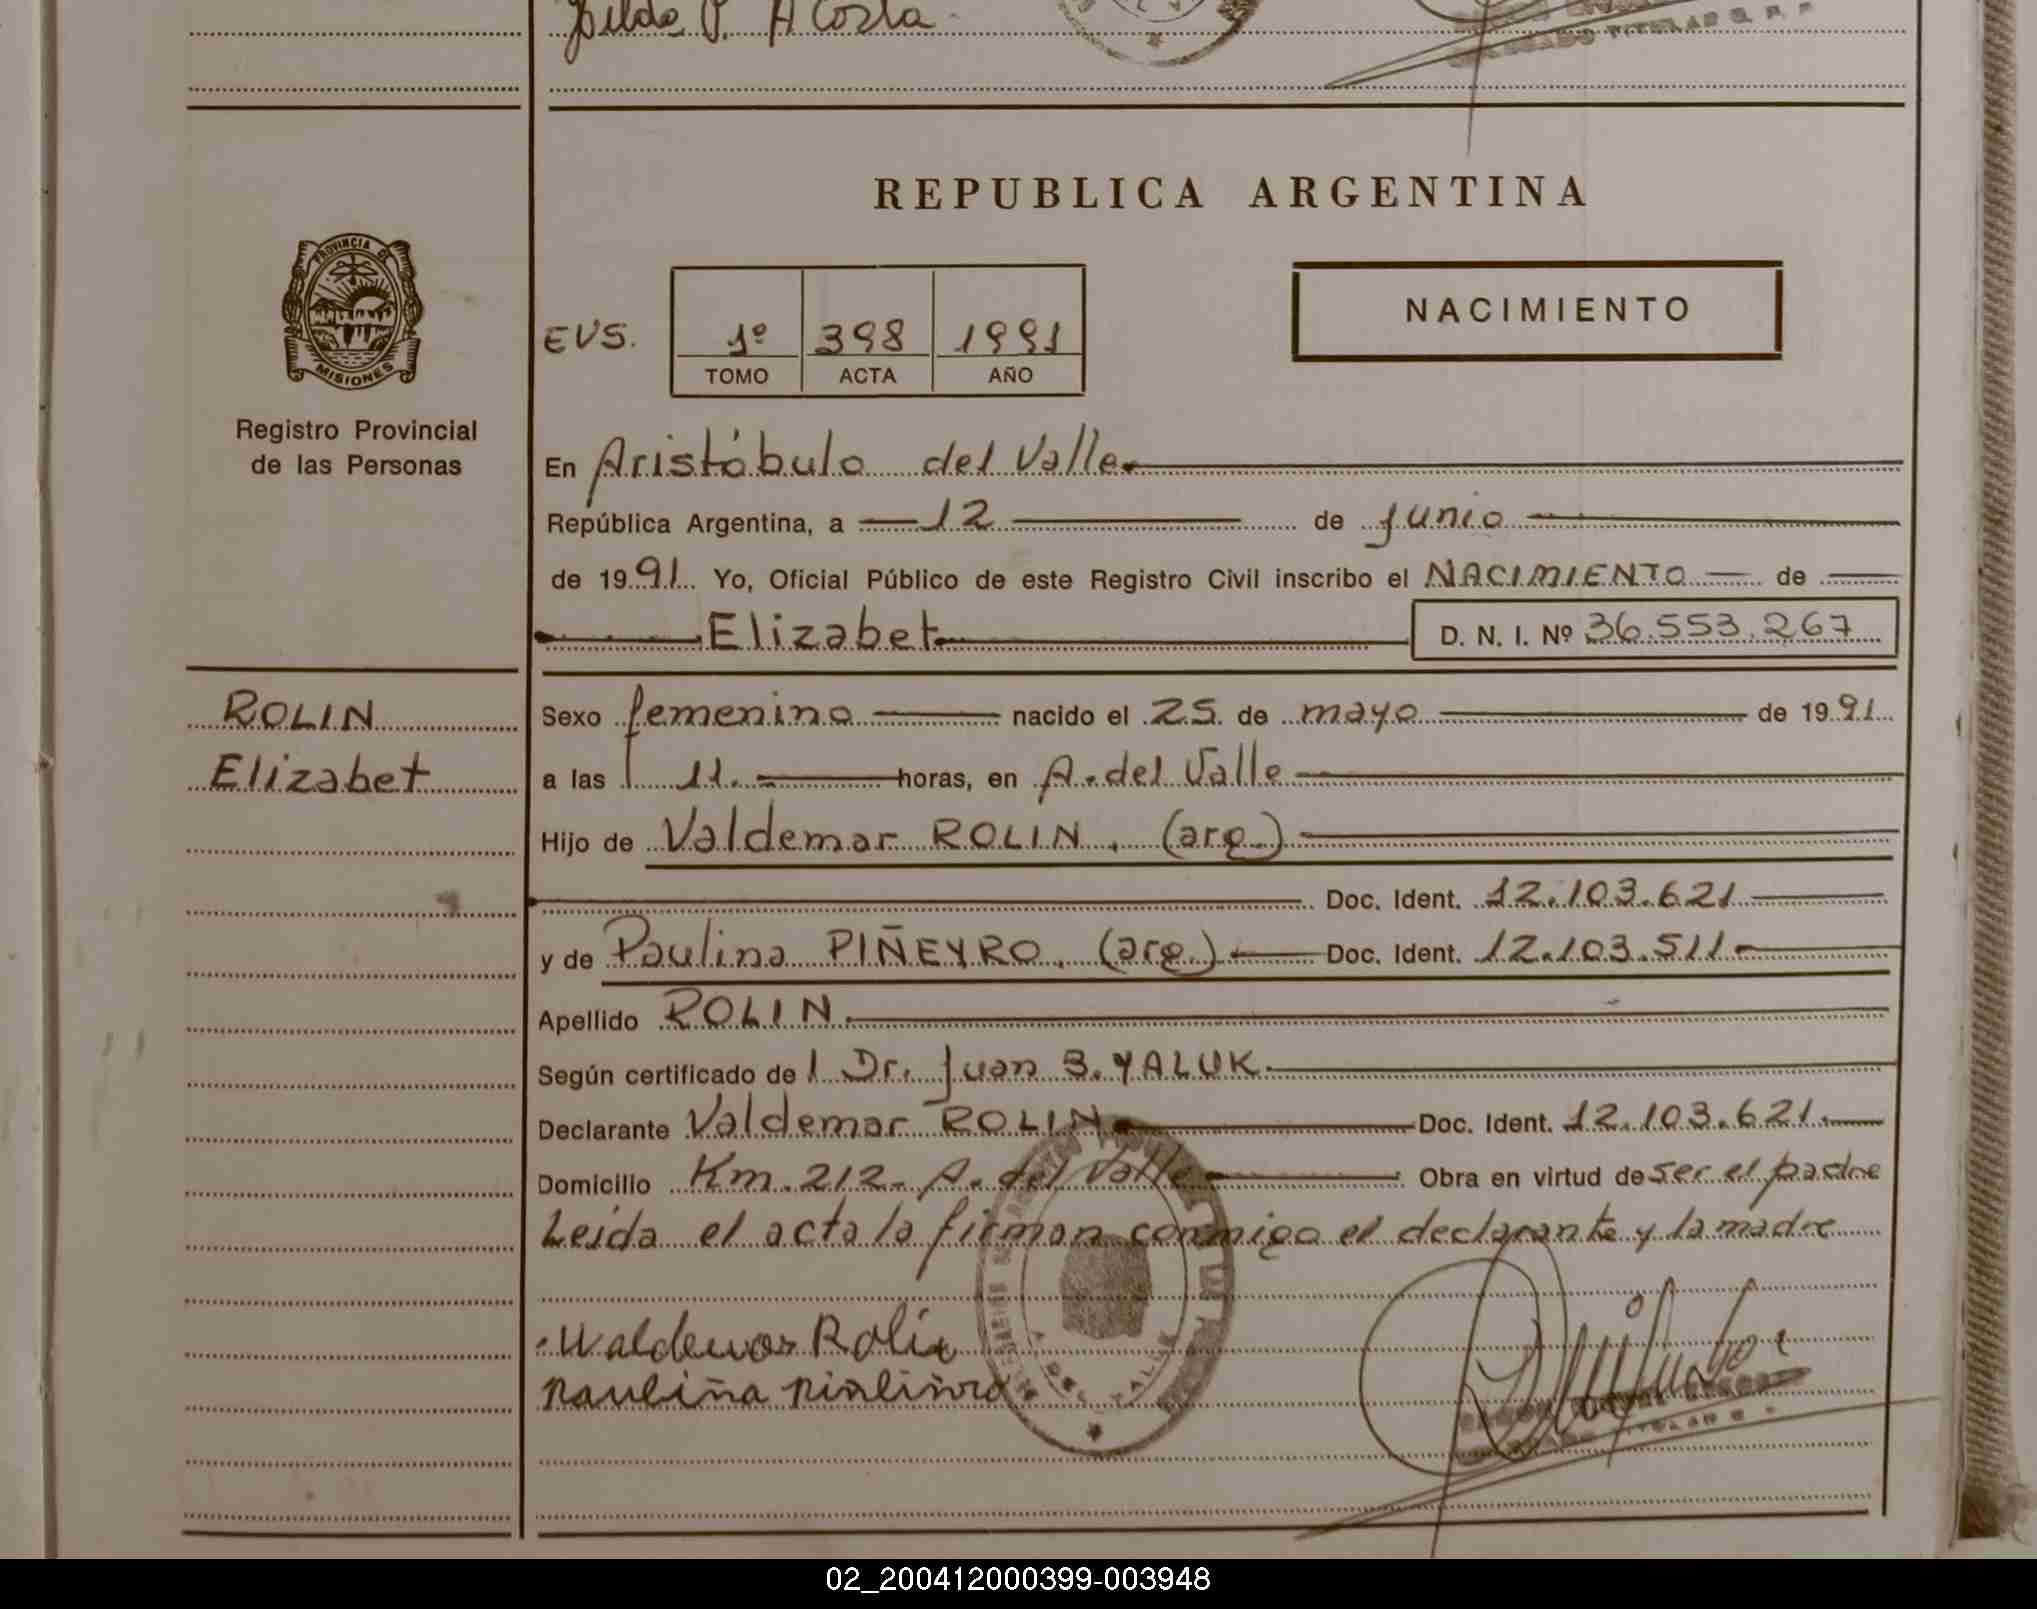 Hilda P. Acosta
REPUBLICA ARGENTINA
PROVINCIA DE
MISIONES
Registro Provincial
de las Personas
NACIMIENTO
EVS. 1º 398 1991
TOMO ACTA AÑO
En Aristóbulo del Valle
República Argentina, a 12 de junio
de 1991 Yo, Oficial Público de este Registro Civil inscribo el NACIMIENTO de
Elizabet D. N. I. Nº 36.553.267
ROLIN
Elizabet
Sexo femenino nacido el 25 de mayo de 1991
a las 11 horas, en A. del Valle
Hijo de Valdemar ROLIN. (arg.)
Doc. Ident. 12.103.621
y de Paulina PIÑEYRO. (arg.) Doc. Ident. 12.103.511
Apellido ROLIN.
Según certificado del Dr. Juan B. YALUK.
Declarante Valdemar ROLIN Doc. Ident. 12.103.621.
Domicilio Km. 212- A. del Valle Obra en virtud de ser el padre
Leída el acta la firman conmigo el declarante y la madre
Waldemar Rolin
Pauliña
DEL VALLE
02_200412000399-003948